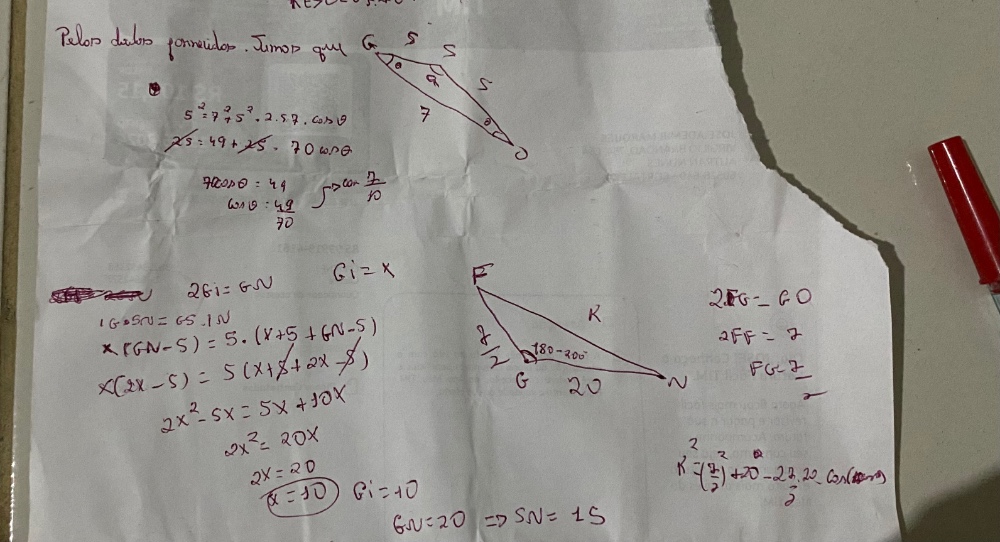 Pelos dados fornecidos. Temos que
G S S
θ α S
7 θ
O
5² = 7² + 5² - 2.5.7. cosθ
25 = 49 + 25 - 70 cosθ
70cosθ = 49
cosθ = 49/70 => cos 7/10
2Gi = GN Gi = x
IG.SN = GS.IN
x(GN-5) = 5.(x+5+GN-5)
x(2x-5) = 5(x+5+2x-5)
2x²-5x = 5x+10x
2x² = 20x
2x = 20
x = 10 Gi = 10
GN = 20 => SN = 15
F
7/2 K
180-200
G 20 N
2FG = GO
2FF = 7
FG = 7/2
K² = (7/2)² + 20² - 2 7/2 . 20 . cos